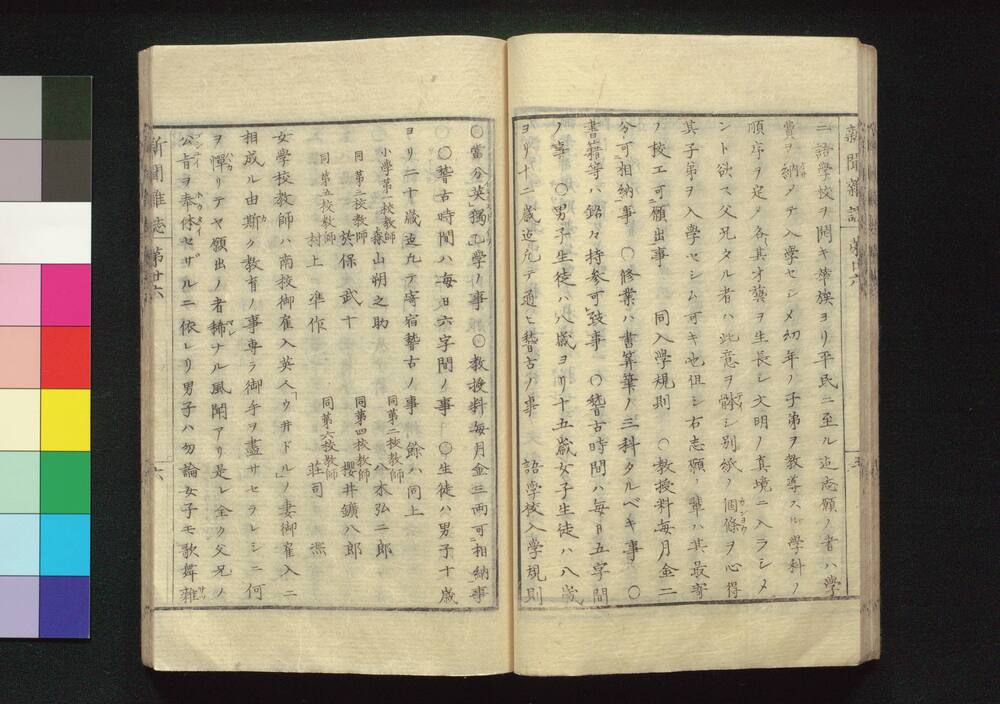 新聞雜誌 第廿六
ニ語學校ヲ開キ華族ヨリ平民ニ至ル迄志願ノ者ハ學
費ヲ納メテ入學セシメ幼年ノ子弟ヲ教導スル學科ノ
順序ヲ定メ各其才藝ヲ生長シ文明ノ真境ニ入ラシメ
ント欲ス父兄タル者ハ此意ヲ體シ別紙ノ個條ヲ心得
其子弟ヲ入學セシム可キ也但シ右志願ノ輩ハ其最寄
ノ校エ可願出事 同入學規則 ○教授料毎月金二
分可相納事 ○修業ハ書算筆ノ三科タルベキ事 ○
書籍等ハ銘々持参可致事 ○稽古時間ハ毎日五字間
ノ事 ○男子生徒ハ八歳ヨリ十五歳女子生徒ハ八歳
ヨリ十二歳迄凡テ通ヒ稽古ノ事 語學校入學規則
五
○當分英獨乙學ノ事 ○教授料毎月金三両可相納事
○稽古時間ハ毎日六字間ノ事 ○生徒ハ男子十歳
ヨリ二十歳迄凡テ寄宿稽古ノ事 餘ハ同上
小學第一校教師 森山朔之助 同第二校教師 八木弘二郎
同第三校教師 於保武十 同第四校教師 櫻井鑛八郎
同第五校教師 村上準作 同第六校教師 莊司
女學校教師ハ南校御雇入英人「ウ井ドル」ノ妻御雇入ニ
相成ル由斯ク教育ノ事専ラ御手ヲ盡サセラレシニ何
ヲ憚リテヤ願出ノ者稀ナル風聞アリ是レ全ク父兄ノ
公旨ヲ奉体セザルニ依レリ男子ハ勿論女子モ歌舞雜
新聞雜志 第廿六
六